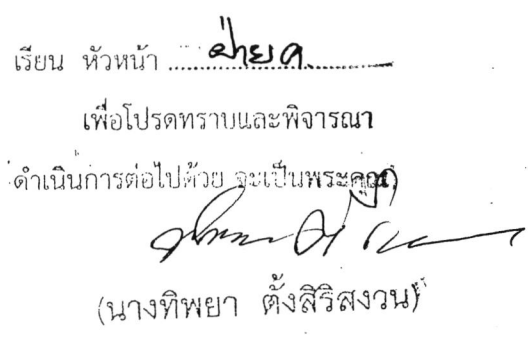 เรียน หัวหน้า ฝ่ายค.
เพื่อโปรดทราบและพิจารณา
ดำเนินการต่อไปด้วย จะเป็นพระคุณ
(นางทิพยา ตั้งสิริสงวน)